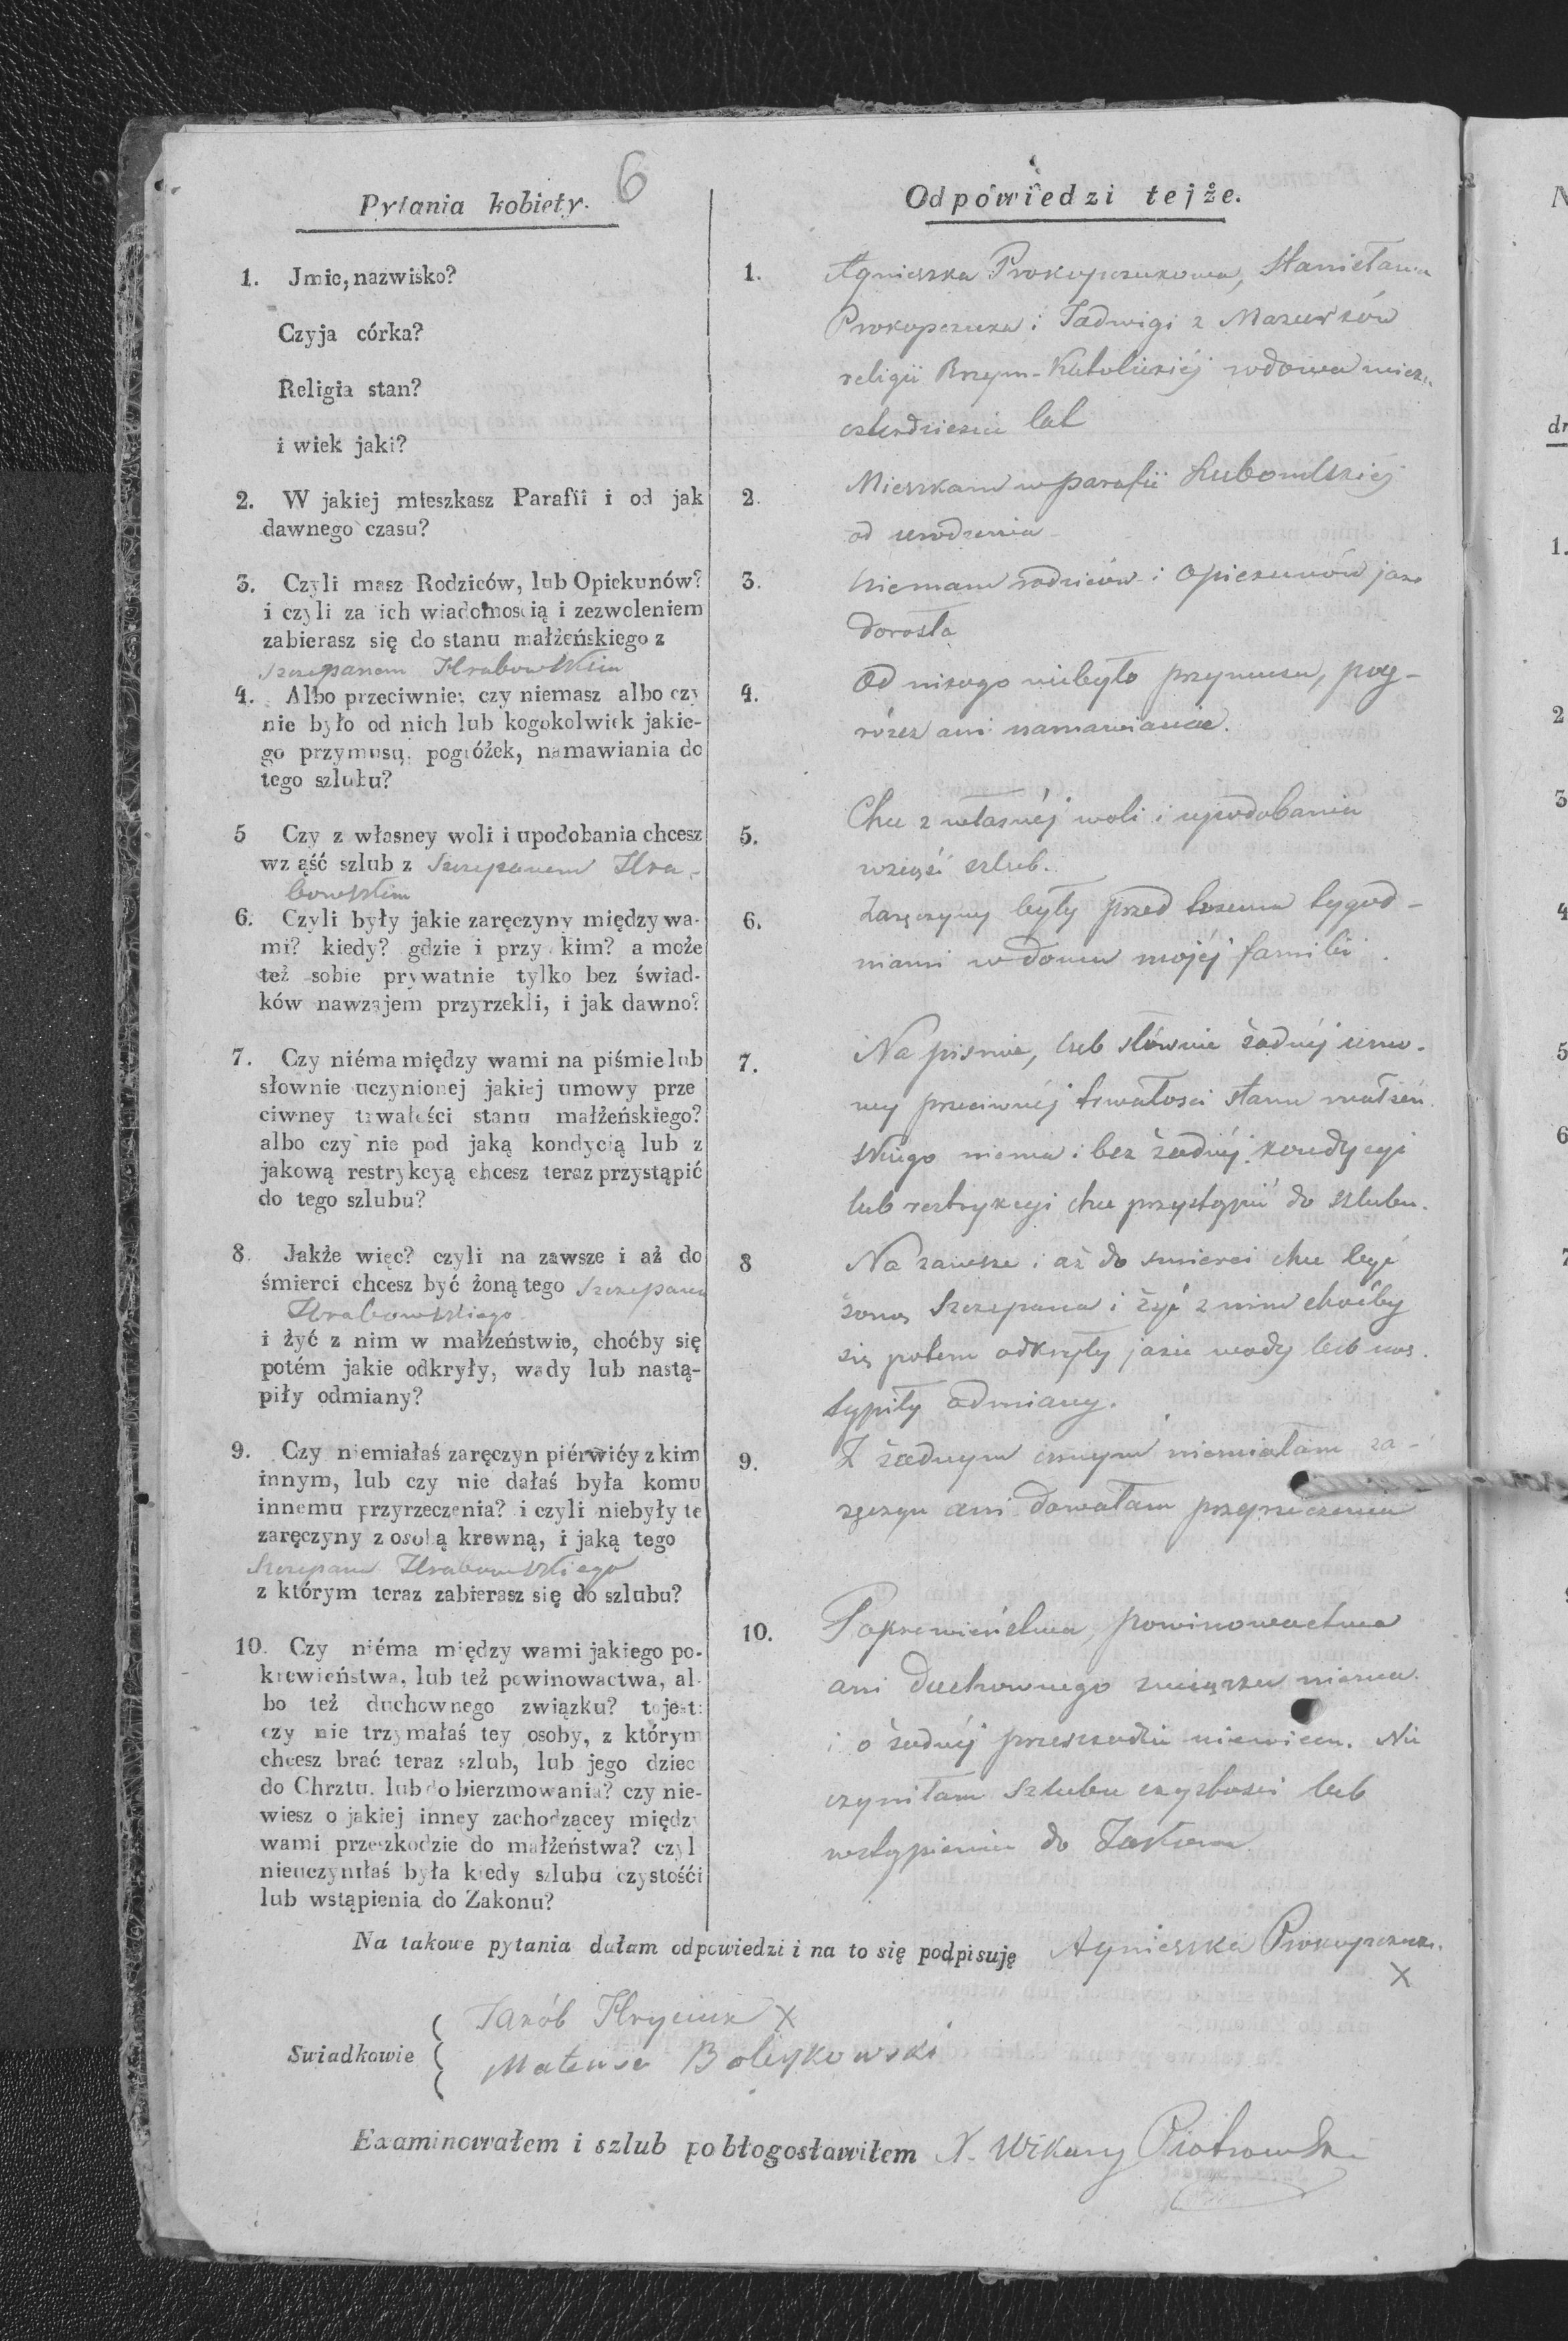 6
Pytania kobiety.
1. Jmie, nazwisko?
Czyja córka?
Religia stan?
i wiek jaki?
2. W jakiej mieszkasz Parafii i od jak
dawnego czasu?
3. Czyli masz Rodziców, lub Opiekunów?
i czyli za ich wiadomością i zezwoleniem
zabierasz się do stanu małżeńskiego z
Szczepanem Hrabowskim
4. Albo przeciwnie; czy niemasz albo czy
nie było od nich lub kogokolwiek jakie-
go przymusu, pogróżek, namawiania do
tego szlubu?
5 Czy z własney woli i upodobania chcesz
wziąść szlub z Szczepanem Hra-
bowskim
6. Czyli były jakie zaręczyny między wa-
mi? kiedy? gdzie i przy kim? a może
też sobie prywatnie tylko bez świad-
ków nawzajem przyrzekli, i jak dawno?
7. Czy niéma między wami na piśmie lub
słownie uczynionej jakiej umowy prze
ciwney trwałości stanu małżeńskiego?
albo czy nie pod jaką kondycią lub z
jakową restrykcyą chcesz teraz przystąpić
do tego szlubu?
8. Jakże więc? czyli na zawsze i aż do
śmierci chcesz być żoną tego Szczepana
Hrabowskiego
i żyć z nim w małżeństwie, choćby się
potém jakie odkryły, wady lub nastą-
piły odmiany?
9. Czy niemiałaś zaręczyn piérwiéy z kim
innym, lub czy nie dałaś była komu
innemu przyrzeczenia? i czyli niebyły te
zaręczyny z osobą krewną, i jaką tego
Szczepana Hrabowskiego
z którym teraz zabierasz się do szlubu?
10. Czy niéma między wami jakiego po-
krewieństwa, lub też powinowactwa, al-
bo też duchownego związku? to jest:
czy nie trzymałaś tey osoby, z którym
chcesz brać teraz szlub, lub jego dziec
do Chrztu, lub do bierzmowania? czy nie-
wiesz o jakiej inney zachodzącey między
wami przeszkodzie do małżeństwa? czyl
nieuczyniłaś była kiedy szlubu czystośći
lub wstąpienia do Zakonu?
Odpowiedzi tejże.
1. Agnieszka Prokopczukowa, Stanisława
Prokopczuka i Jadwigi z Mazurków
religii Rzym-Katolickiéj wdowa
czterdzieści lat
2. Mieszkam w parafii Lubomlskiéj
od urodzenia
3. Niemam rodziców i opiekunów jako
dorosła
4. Od nikogo niebyło przymusu, pog-
różek ani namawiania.
5. Chce z własnéj woli i upodobania
wziąść szlub.
6. Zaręczyny były przed trzema tygod-
niami w domu mojéj familii.
7. Na piśmie, lub słownie żadnéj umo-
wy przeciwnéj trwałości stanu małżeń
skiego niema i bez żadnéj kondycyi
lub restrykcyi chce przystąpić do szlubu.
8 Na zawsze i aż do śmierci chce być
żoną Szczepana i żyć z nim choćby
się potem odkryły jakie wady lub nas-
tąpiły odmiany.
9. Z żadnym innym niemiałam za-
ręczyn ani dawałam przyrzeczenia
10. Pokrewieństwa, powinowactwa
ani duchownego związku niema
i o żadnéj przeszkodzie niewiem. Nie
czyniłam szlubu czystości lub
wstąpienia do Zakonu
Na takowe pytania dałam odpowiedzi i na to się podpisuję Agnieszka Prokopczuk.
X
Swiadkowie
Jakób Hryciuk X
Mateusz Boleykowski
Examinowałem i szlub pobłogosławiłem X. Wikary Piotrowski